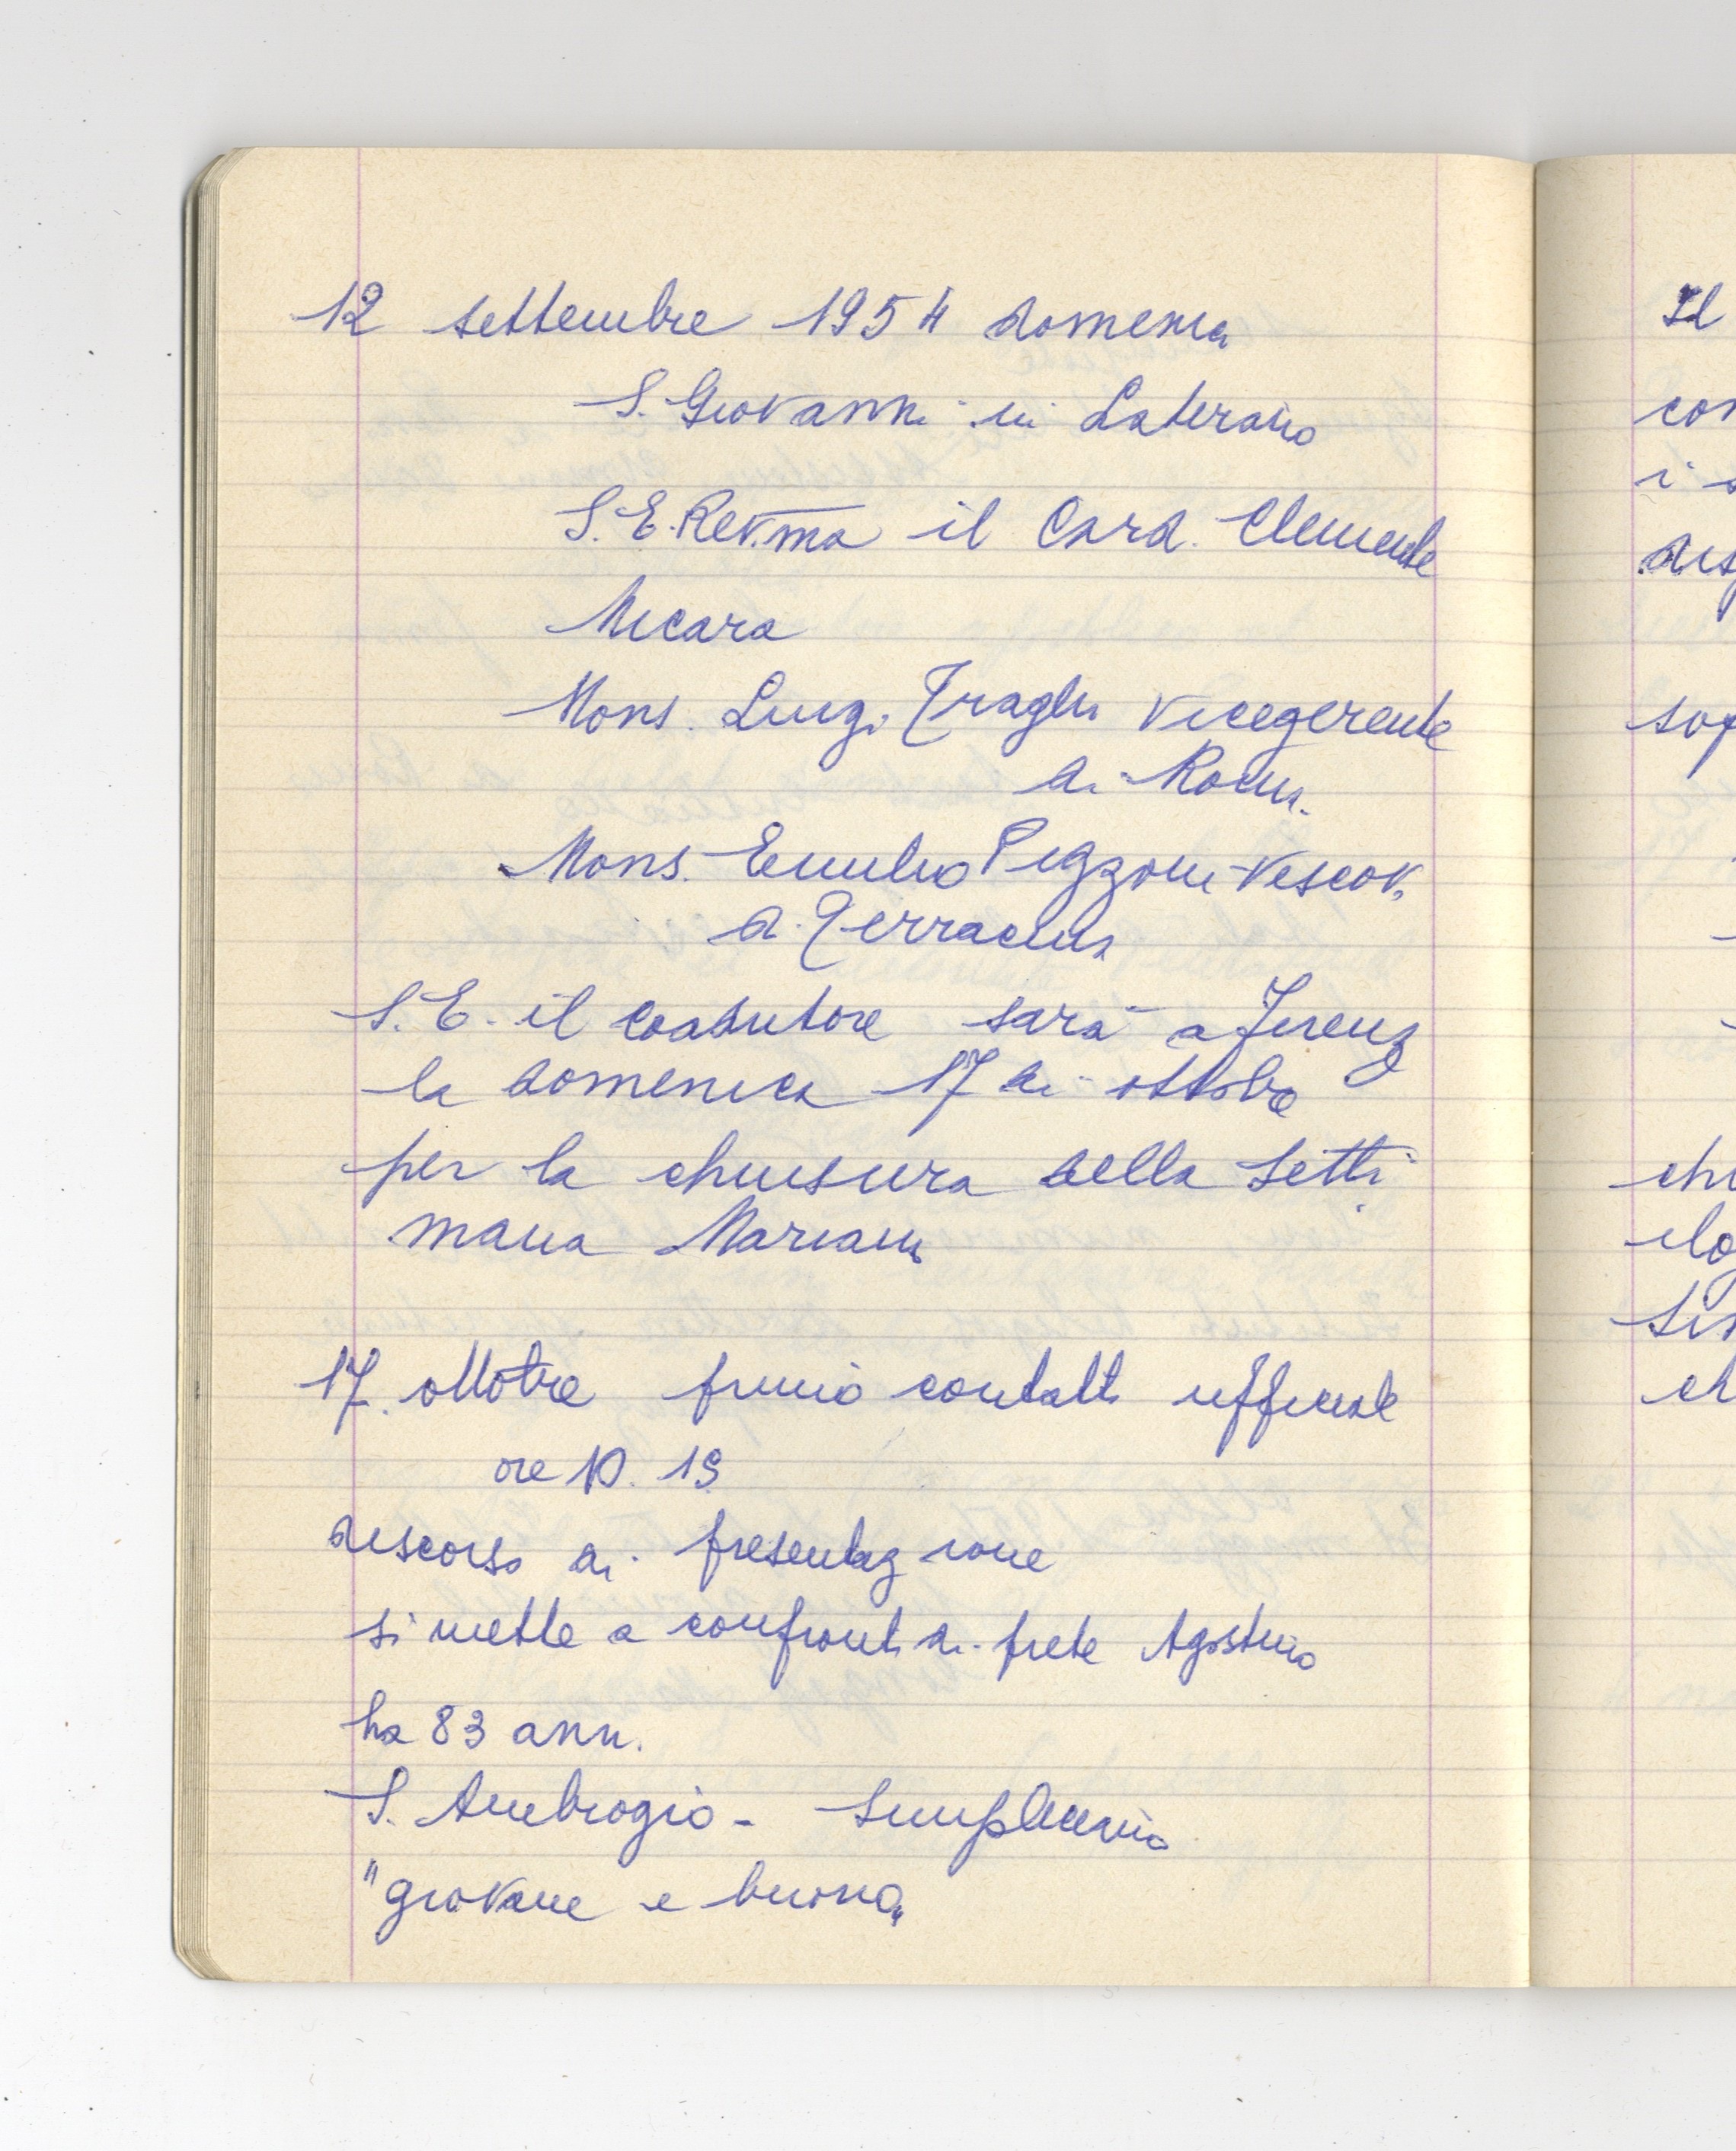 12 settembre 1954 domenica
S. Giovanni in Laterano
S. E. Rev.ma il Card. Clemente
Micara
Mons. Luigi Traglia Vicegerente
di Roma.
Mons. Emilio Pizzoni Vescov.
di Terracina
S. E. il coadiutore sarà a Firenz
la domenica 17 di ottobre
per la chiusura della Setti
mana Mariana
17. ottobre primo contatto ufficiale
ore 10. 15
discorso di presentazione
si mette a confronti di prete Agostino
ha 83 anni.
S. Ambrogio - Simpliciano
"giovane e buono"
Il
con
i
sop